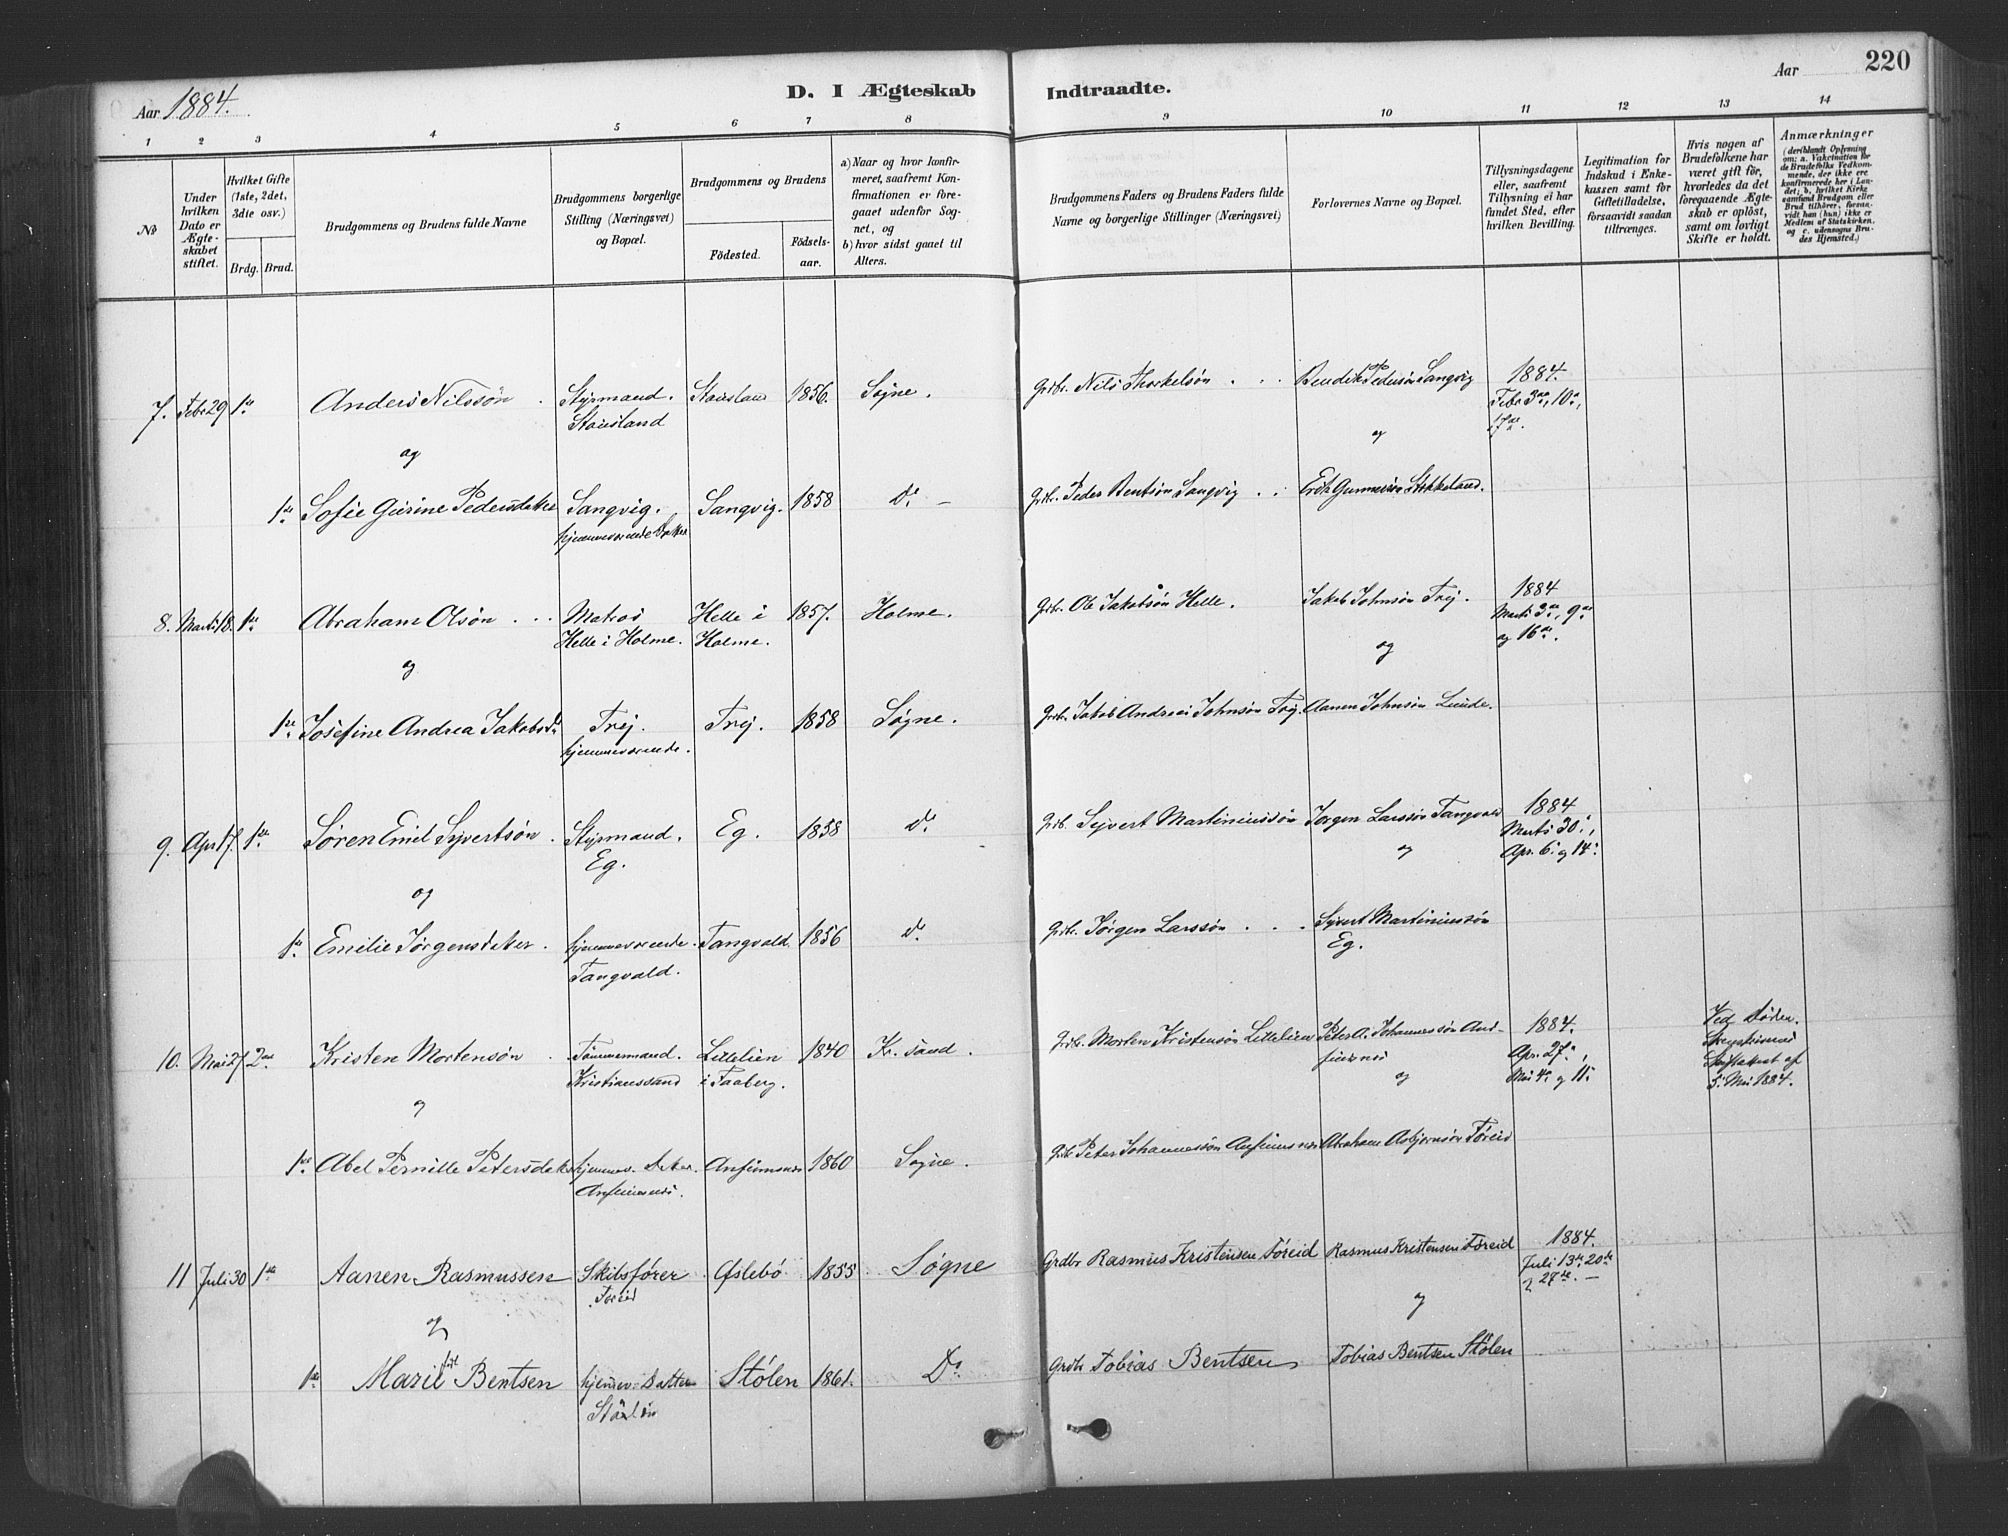 Aar 1884.
D. I Ægteskab
Indtraadte.
Aar
220
1 2 3 4 5 6 7 8 9 10 11 12 13 14
No
Under hvilken Dato er Ægte-skabet stiftet.
Hvilket Gifte (1ste, 2det, 3die osv.)
Brdg. Brud.
Brudgommens og Brudens fulde Navne
Brudgommens borgerlige Stilling (Næringsvei) og Bopæl.
Brudgommens og Brudens
Födested.
Födsels-aar.
a) Naar og hvor konfir-meret, saafremt Kon-firmationen er fore-gaaet udenfor Sog-net, og
b) hvor sidst gaaet til Alters.
Brudgommens Faders og Brudens Faders fulde Navne og borgerlige Stillinger (Næringsvei)
Forlovernes Navne og Bopæl.
Tillysningsdagene eller, saafremt Tillysning ei har fundet Sted, efter hvilken Bevilling.
Legitimation for Indskud i Enke-kassen samt for Giftetilladelse, forsaavidt saadan tiltrænges.
Hvis nogen af Brudefolkene har været gift för, hvorledes da det foregaaende Ægte-skab er oplöst, samt om lovligt Skifte er holdt.
Anmærkninger
(deriblandt Oplysning om: a. Vakcination for de Brudefolks Vedkom-mende, der ikke ere konfirmerede her i Lan-det; b. hvilket Kirke samfund Brudgom eller Brud tilhörer, forsaa-vidt han (hun) ikke er Medlem af Statskirken, og c. udensogns Bru-des Hjemsted.)
7. Febr 29 1ste Anders Nilssøn . Styrmand. Stausland 1856. Søgne. Grdbr. Nils Thorkelsøn . . . Bendik Pedersøn Sangvig 1884.
Stausland Febr 3die, 10de, 17de.
og og
1ste Sofie Gurine Pedersdatter Sangvig. Sangvig. 1858 Do — Grdbr. Peder Bentsøn Sangvig . . Erik Gunnersøn Stokkeland.
hjemmeværende Datter
8. Marts 18. 1ste Abraham Olsøn . . . Matros Helle i 1857. Holme. Grdbr. Ole Jakobsøn Helle. Jakob Johnsøn Trej. 1884
Helle i Holme. Holme. Marts 2den, 9de
og 16de.
og og
1ste Josefine Andrea Jakobsdr Trej. Trej. 1858 Søgne. Grdbr. Jakob Andreas Johnsøn Trej. Aanen Johnsøn Lunde.
hjemmeværende.
9. Apr 17. 1ste Søren Emil Syvertsøn . Styrmand. Eg. 1858 do Grdb. Syvert Martiniussøn Jørgen Larssøn Tangvald 1884
Eg. Marts 30.,
og og Apr. 6. og 14.
1ste Emilie Jørgensdatter . hjemmeværende. Tangvald 1856 do Grdbr. Jørgen Larssøn . . . Syvert Martiniussøn
Tangvald. Eg.
10. Mai 27. 2den Kristen Mortensøn . Tømmermand. Lillelien 1840 Kr.sand. Grdbr. Morten Kristensøn Lillelien Peter A. Johannessøn And- 1884. Ved Døden.
Kristianssand i Faaberg. finsnes Apr. 27de,
og og Mai 4de og 11. Skifteattest af
5. Mai 1884.
1ste Abel Pernille Petersdatter hjemmev. Datter. Anfinsnes 1860 Søgne. Grdb. Peter Johannessøn Anfinsnes Abraham Asbjørnsøn Tøreid
Anfinsnes.
11 Juli 30 1ste Aanen Rasmussen Skibsfører Øslebö 1855 Søgne Grdbr Rasmus Kristensen Toreid Rasmus Kristensen Toreid 1884.
Toreid Juli 13de 20de
og 27de. —
og og
1ste Marie født Bentsen hjemmev Datter Stølen 1861. Do Grdbr Tobias Bentsen Tobias Bentsen Stølen
Stølen